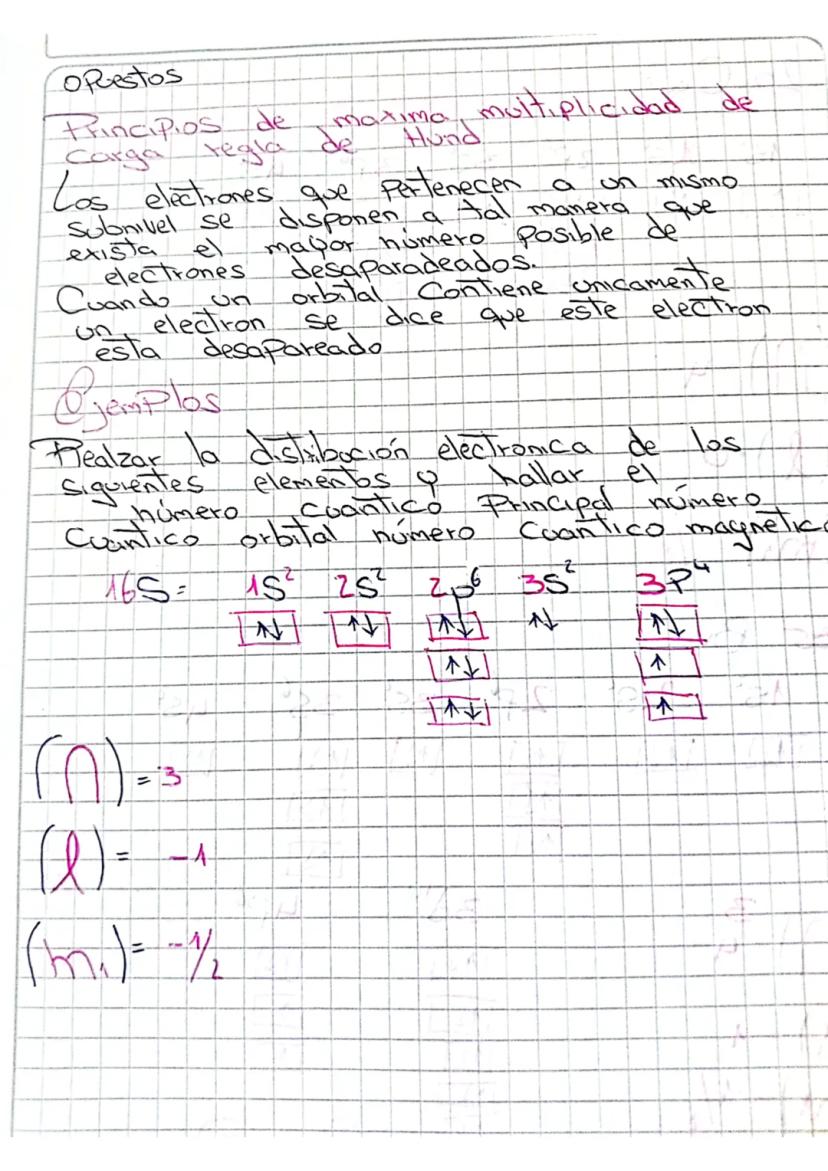 opuestos
Principios de maxima multiplicidad de
carga regla de Hund
Los electrones que pertenecen a un mismo
subnivel se disponen a tal manera que
exista el mayor número posible de
electrones desaparadeados.
Cuando un orbital contiene unicamente
un electron se dice que este electron
esta desapareado
Ejemplos
Realzar la distribución electronica de los
siguientes elementos y hallar el
número cuantico Principal número
Cuantico orbital número Cuantico magnetico
16S= 1S² 2S² 2p⁶ 3S² 3P⁴
↑↓ ↑↓ ↑↓ ↑↓ ↑↓
↑↓ ↑
↑↓ ↑
(n) = 3
(l) = -1
(m₁) = -1/2